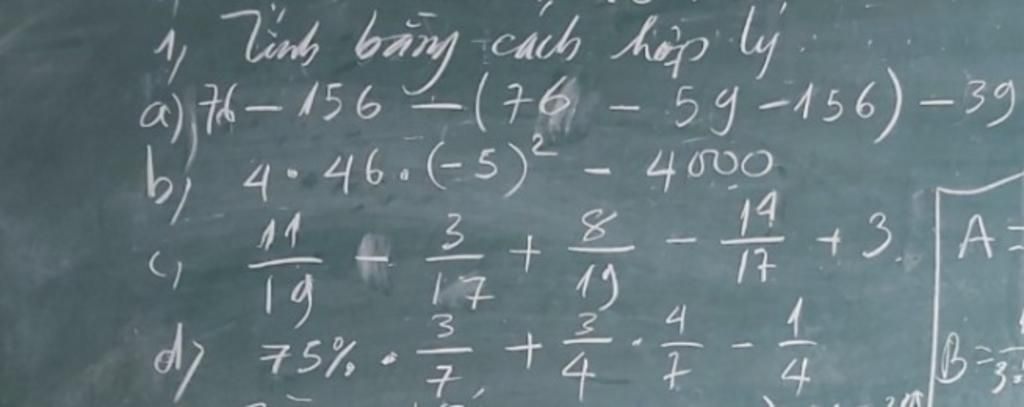 1, Tính bằng cách hợp lý.
a) 76 - 156 - (76 - 59 - 156) - 39
b, 4 . 46 . (-5)² - 4000
c, 11/19 - 3/17 + 8/19 - 14/17 + 3
A =
d) 75% . 3/7 + 3/4 . 4/7 - 1/4
B =